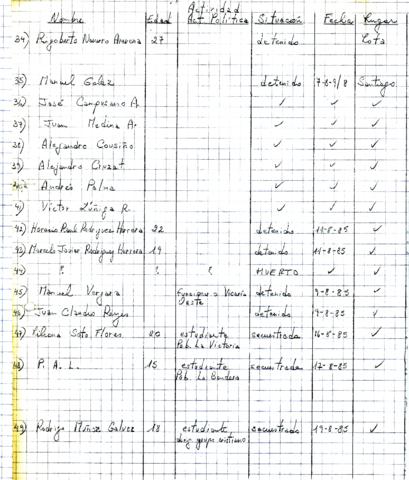 Actividad
Nombre Edad Act Política Situación Fecha Lugar
34) Rigoberto Navarro 27 detenido Lota
35) Manuel detenido 7-8-9/8 Santiago
36) José A. ✓ ✓ ✓
37) Juan Medina A. ✓ ✓ ✓
38) Alejandro Cousiño ✓ ✓ ✓
39) Alejandro ✓ ✓ ✓
Andrés Palma ✓ ✓ ✓
41) Víctor Zúñiga R. ✓ ✓ ✓
42) Horacio Rodriguez Herrera 22 detenido 11-8-85 ✓
43) Marcelo Javier Rodriguez Herrera 19 detenido 11-8-85 ✓
44) " " " MUERTO ✓ ✓
45) Manuel Vergara Vicaría detenido 9-8-85 ✓
Oeste
46) Juan Claudio Reyes detenido 9-8-85 ✓
47) Soto Flores estudiante secuestrada 16-8-85 ✓
Pob. La Victoria
48) P. A. L. 15 estudiante secuestrada 17-8-85 ✓
Pob. La Bandera
49) Rodrigo Muñoz Galvez 18 estudiante secuestrado 19-8-85 ✓
grupo cristiano